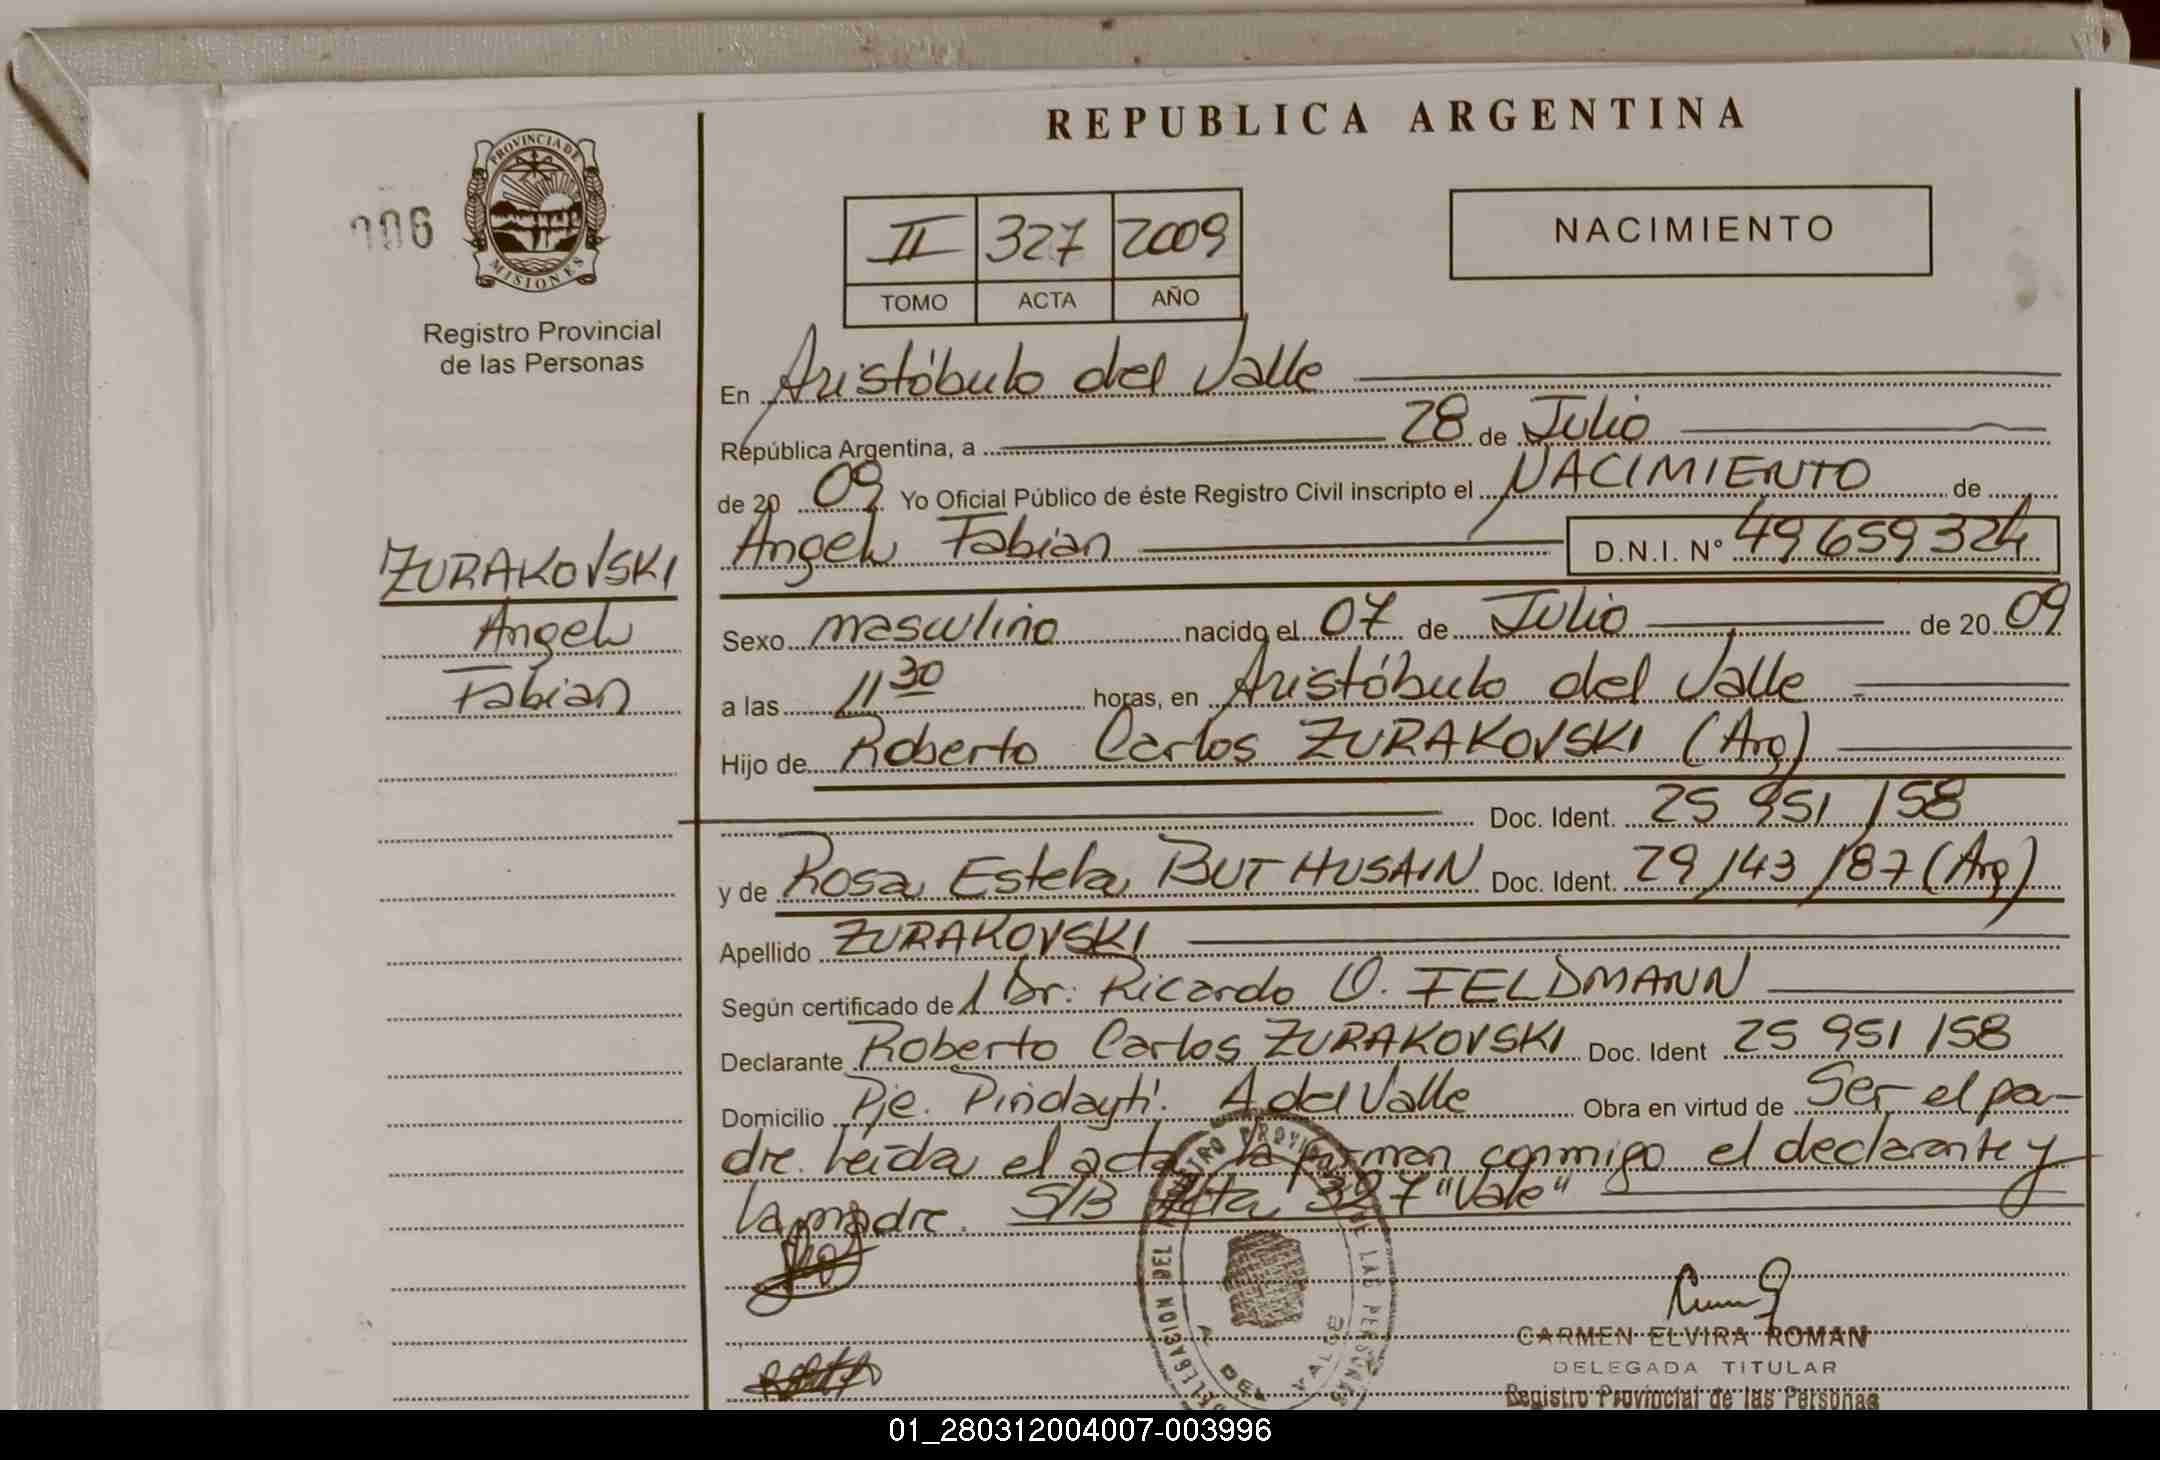 REPUBLICA ARGENTINA
PROVINCIA DE
MISIONES
006
Registro Provincial
de las Personas
NACIMIENTO
II 327 2009
TOMO ACTA AÑO
ZURAKOVSKI
Angel
Fabian
En Aristóbulo del Valle
República Argentina, a 28 de Julio
de 20 09 Yo Oficial Público de éste Registro Civil inscripto el NACIMIENTO de
Angel Fabian D.N.I. N° 49 659 324
Sexo masculino nacido el 07 de Julio de 20 09
a las 11 30 horas, en Aristóbulo del Valle
Hijo de Roberto Carlos ZURAKOVSKI (Arg)
Doc. Ident. 25 951 158
y de Rosa Estela BUT HUSAIN Doc. Ident. 29 143 187 (Arg)
Apellido ZURAKOVSKI
Según certificado de l Dr. Ricardo O. FELDMANN
Declarante Roberto Carlos ZURAKOVSKI Doc. Ident 25 951 158
Domicilio Pje. Pindaytí. A del Valle Obra en virtud de Ser el pa-
dre. Leída el acta la firman conmigo el declarante y
la madre. S/B Acta 327 "Vale"
DELEGACION DEL REGISTRO PROVINCIAL DE LAS PERSONAS
A. DEL VALLE
CARMEN ELVIRA ROMAN
DELEGADA TITULAR
Registro Provincial de las Personas
01_280312004007-003996